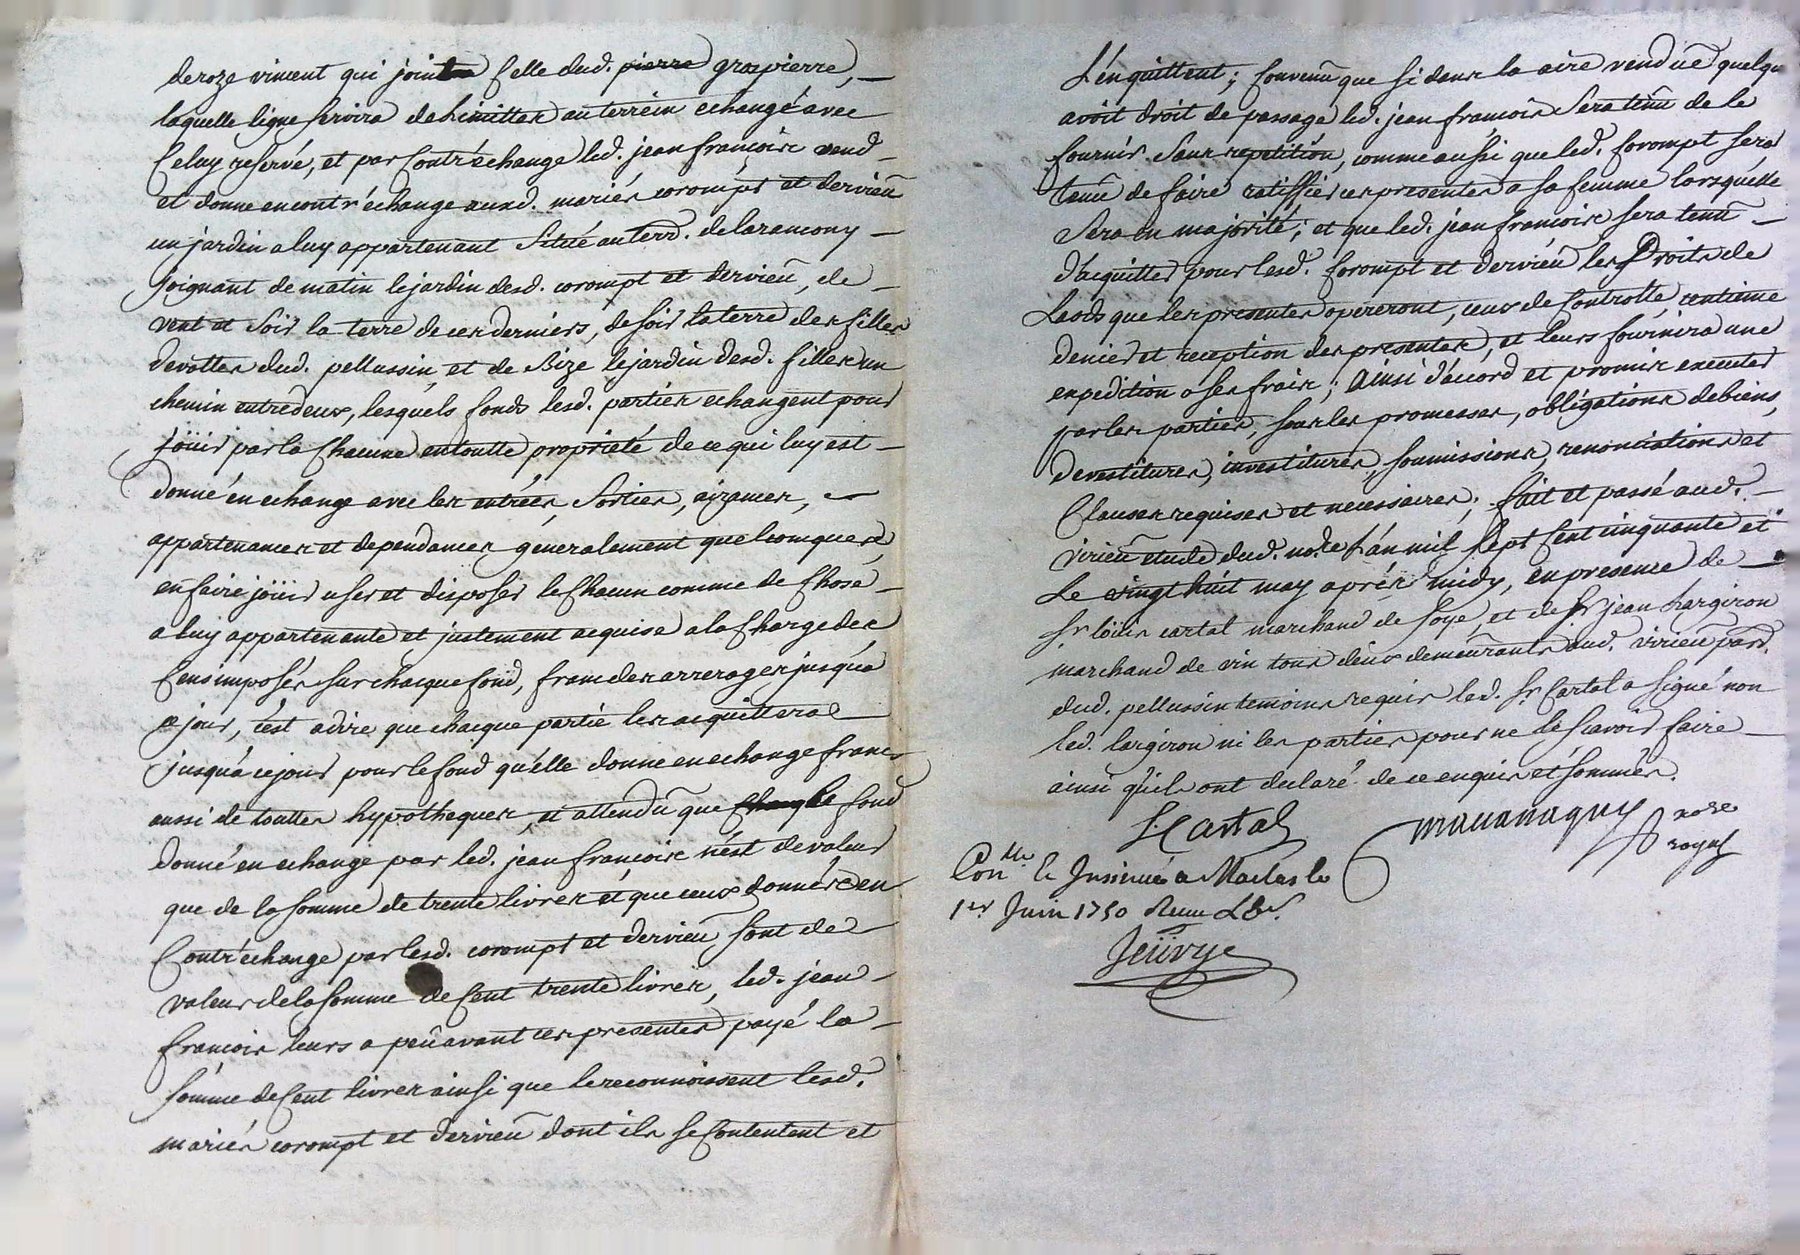 de roze vincent qui joint Celle dud. pierre grospierre,
laquelle ligne servira de Limitter au terrein echangé avec
Celuy reservé, et par Contr'échange led. jean françois vend
et donne en contr'échange auxd. mariés corompt et dervieu
un jardin a luy appartenant Situé au terr. de laramony
joignant de matin le jardin desd. corompt et dervieu, de
vent et soir la terre de ces derniers, de soir la terre des filles
devottes dud. pellussin, et de Bize le jardin desd. filles un
chemin entredeux, lesquels fonds lesd. parties echangent pour
joüir par la Chacune en toutte proprieté de ce qui luy est
donné en echange avec les entrées, Sorties, aizances,
appartenances et dependances generalement quelconques,
en faire joüir user et disposer le Chacun comme de Chose
a luy appartenante et justement acquise a la Charge des
Cens imposés sur chacque fond, franc des arrerages jusqu'a
ce jour, c'est a dire que chacque partie les acquittera
jusqu'a ce jour pour le fond qu'elle donne en echange franc
aussi de touttes hypotheques, et attendu que le fond
donné en echange par led. jean françois n'est de valeur
que de la somme de trente livres et que ceux donnés en
Contr'échange par lesd. corompt et dervieu sont de
valeur de la somme de Cent trente livres, led. jean
françois leurs a peu avant ces presentes payé la
somme de Cent livres ainsi que le reconnoissent lesd.
mariés corompt et dervieu dont ils se Contentent et
L'en quittent; Convenu que si dans la aire vendüe quelqu
avoit droit de passage led. jean françois Sera tenu de le
fournir Sans repetition, comme aussi que led. Corompt sera
tenu de faire ratiffier ces presentes a sa femme lorsqu'elle
Sera en majorité; et que led. jean françois sera tenu
d'acquitter pour lesd. Corompt et dervieu les Droits de
Laods que les presentes opereront, ceux de Controlle, centieme
denier et reception des presentes, et leurs fournira une
expedition a ses frais; Ainsi d'acord et promis executer
par les parties, sous les promesses, obligations de biens,
devestitures, investitures, soumissions, renonciations et
Clauses requises et necessaires; fait et passé aud.
virieu etude dud. no.re L'an mil Sept Cent cinquante et
Le vingt huit may aprés midy, en presence de
Sr loüis cartal marchand de soye, et de Sr jean Largiron
marchand de vin tous deux demeurants aud. virieu parr.
dud. pellussin temoins requis led. Sr Cartal a signé non
led. largiron ni les parties pour ne le sçavoir faire
ainsi qu'ils ont declaré de ce enquis et sommés.
L Cartal
mavanaguy no.re
royal
Con.lle & Insinué a Maclas le
1er Juin 1750 Reçu